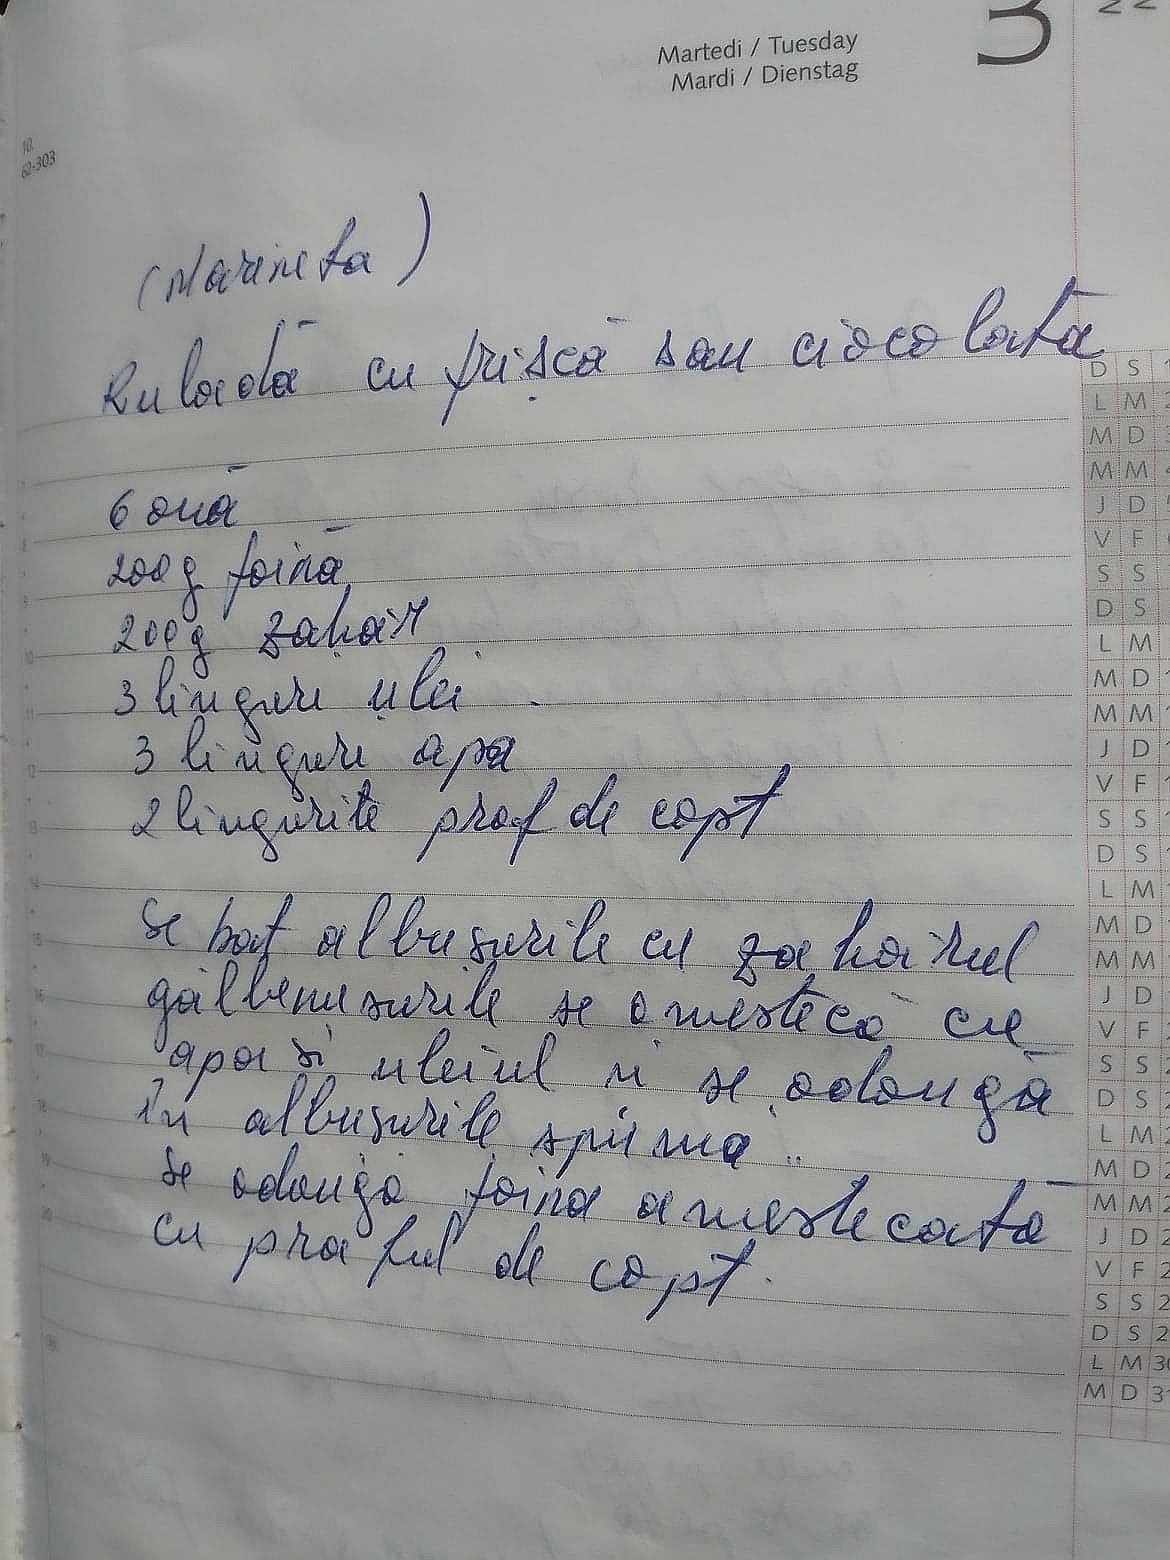 Martedì / Tuesday
Mardi / Dienstag
3
10.
62-303
(Marineta)
Ruladă cu frișcă sau ciocolată
6 ouă
200g făină
200g zahăr
3 linguri ulei
3 linguri apa
2 lingurite praf de copt
Se bat albușurile cu zahărul
gălbenușurile se amestecă cu
apa și uleiul și se adaugă
în albușurile spumă
se adaugă făina amestecată
cu praful de copt.
D S
L M
M D
M M
J D
V F
S S
D S
L M
M D
M M
J D
V F
S S
D S
L M
M D
M M
J D
V F
S S
D S
L M
M D
M M
J D
V F
S S
D S
L M 30
M D 31